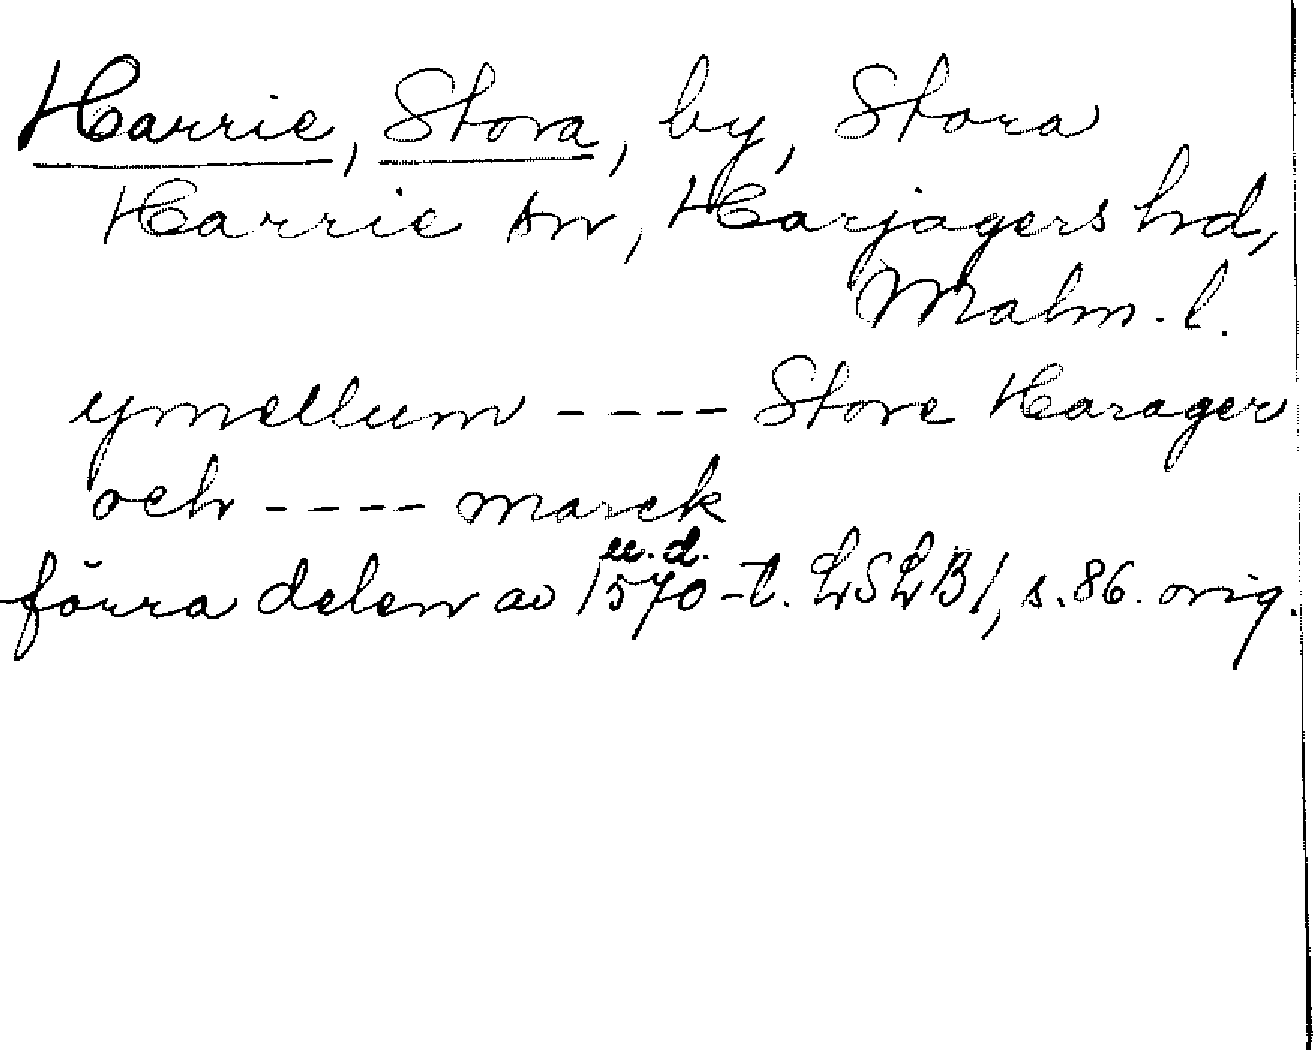 Harrie, Stora, by, Stora
Harrie sn, Harjagers hd,
Malm. l.
ymellum ---- Store Harager
och ---- marck
u.d.
förra delen av 1570-t. LSLB1, s. 86. orig.